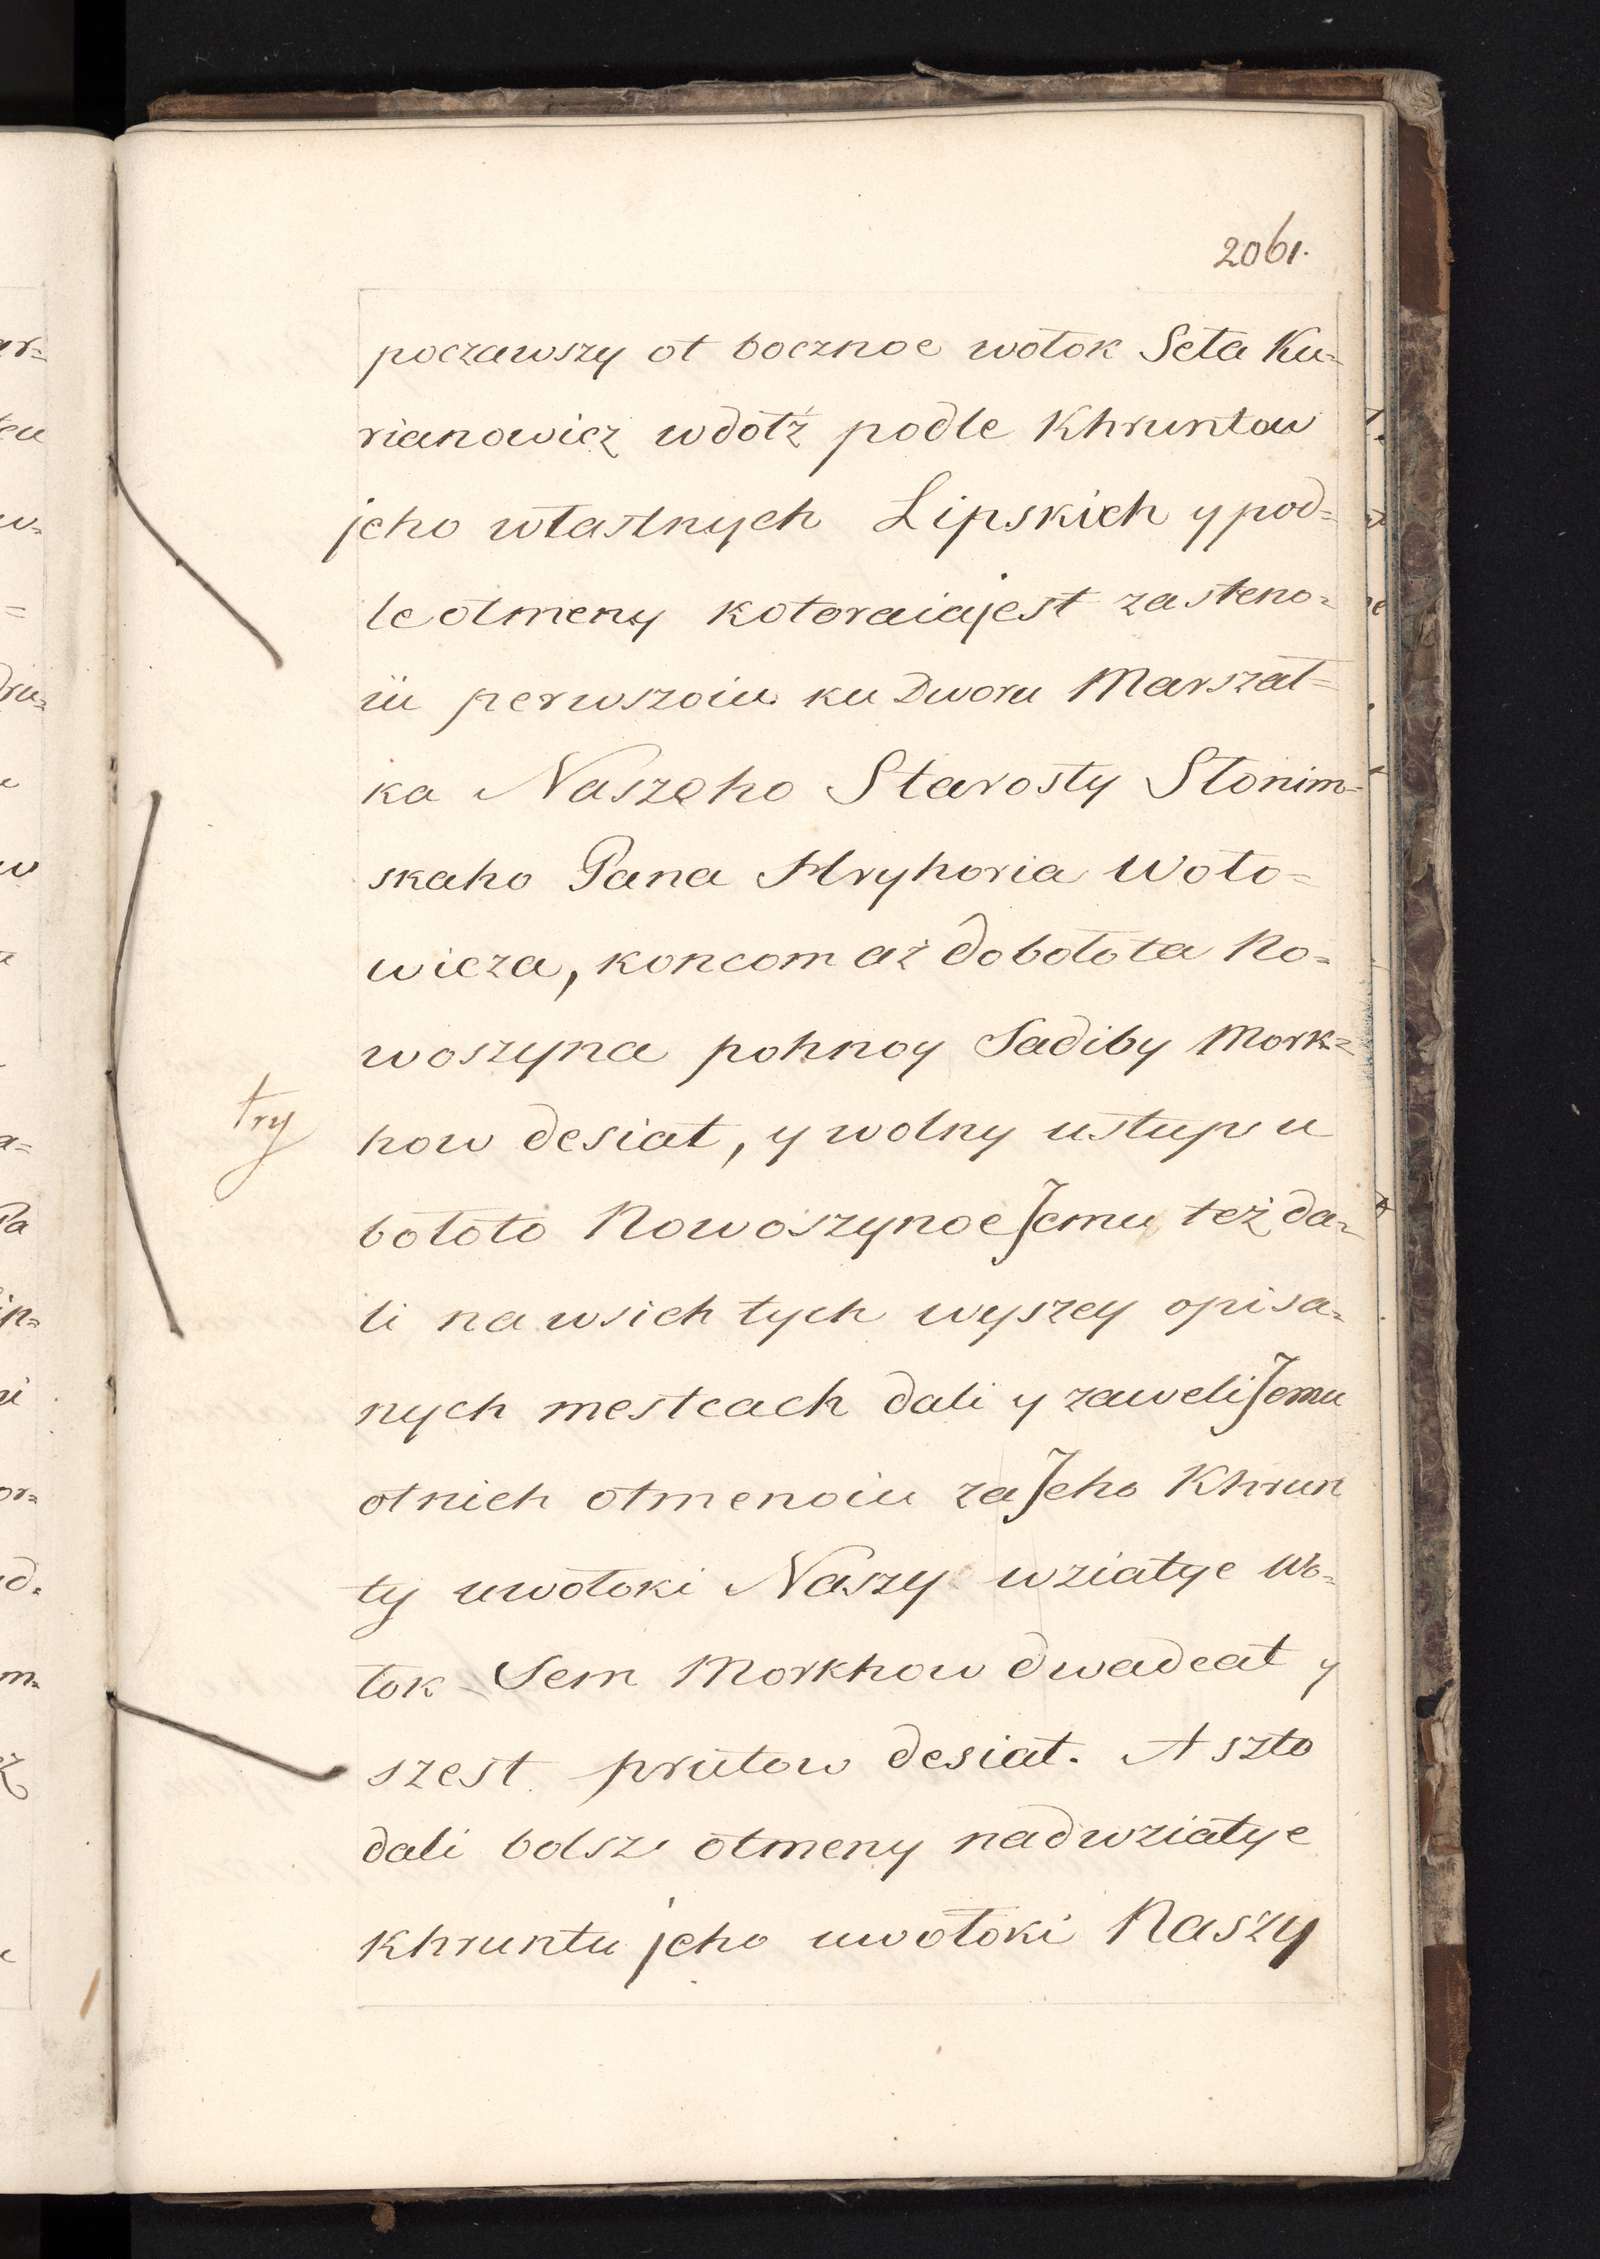 2061.
poczawszy ot bocznoe wołok Seła Ku=
rianowicz wdołź podle Khruntow
jeho własłnych Lipskich y pod=
le otmeny kotoraia jest za steno=
iu perwszoiu ku Dworu Marszał=
ka Naszeho Starosty Słonim=
skaho Pana Hryhoria Woło=
wicza, koncom aż do bołota No=
woszyna pohnoy Sadiby Mork=
how desiat, y wolny ustup u
try
bołoto Nowoszynoe Jemu też da=
li na wsich tych wyszey opisa=
nych mestcach dali y zaweli Jemu
otnich otmenoiu za Jeho Khrun
ty uwołoki Naszy wziatye Wo=
łok Sem Morkhow dwadcat y
szest prutow desiat. A szto
dali bolsz otmeny nad wziatye
Khruntu jeho uwołoki Naszy